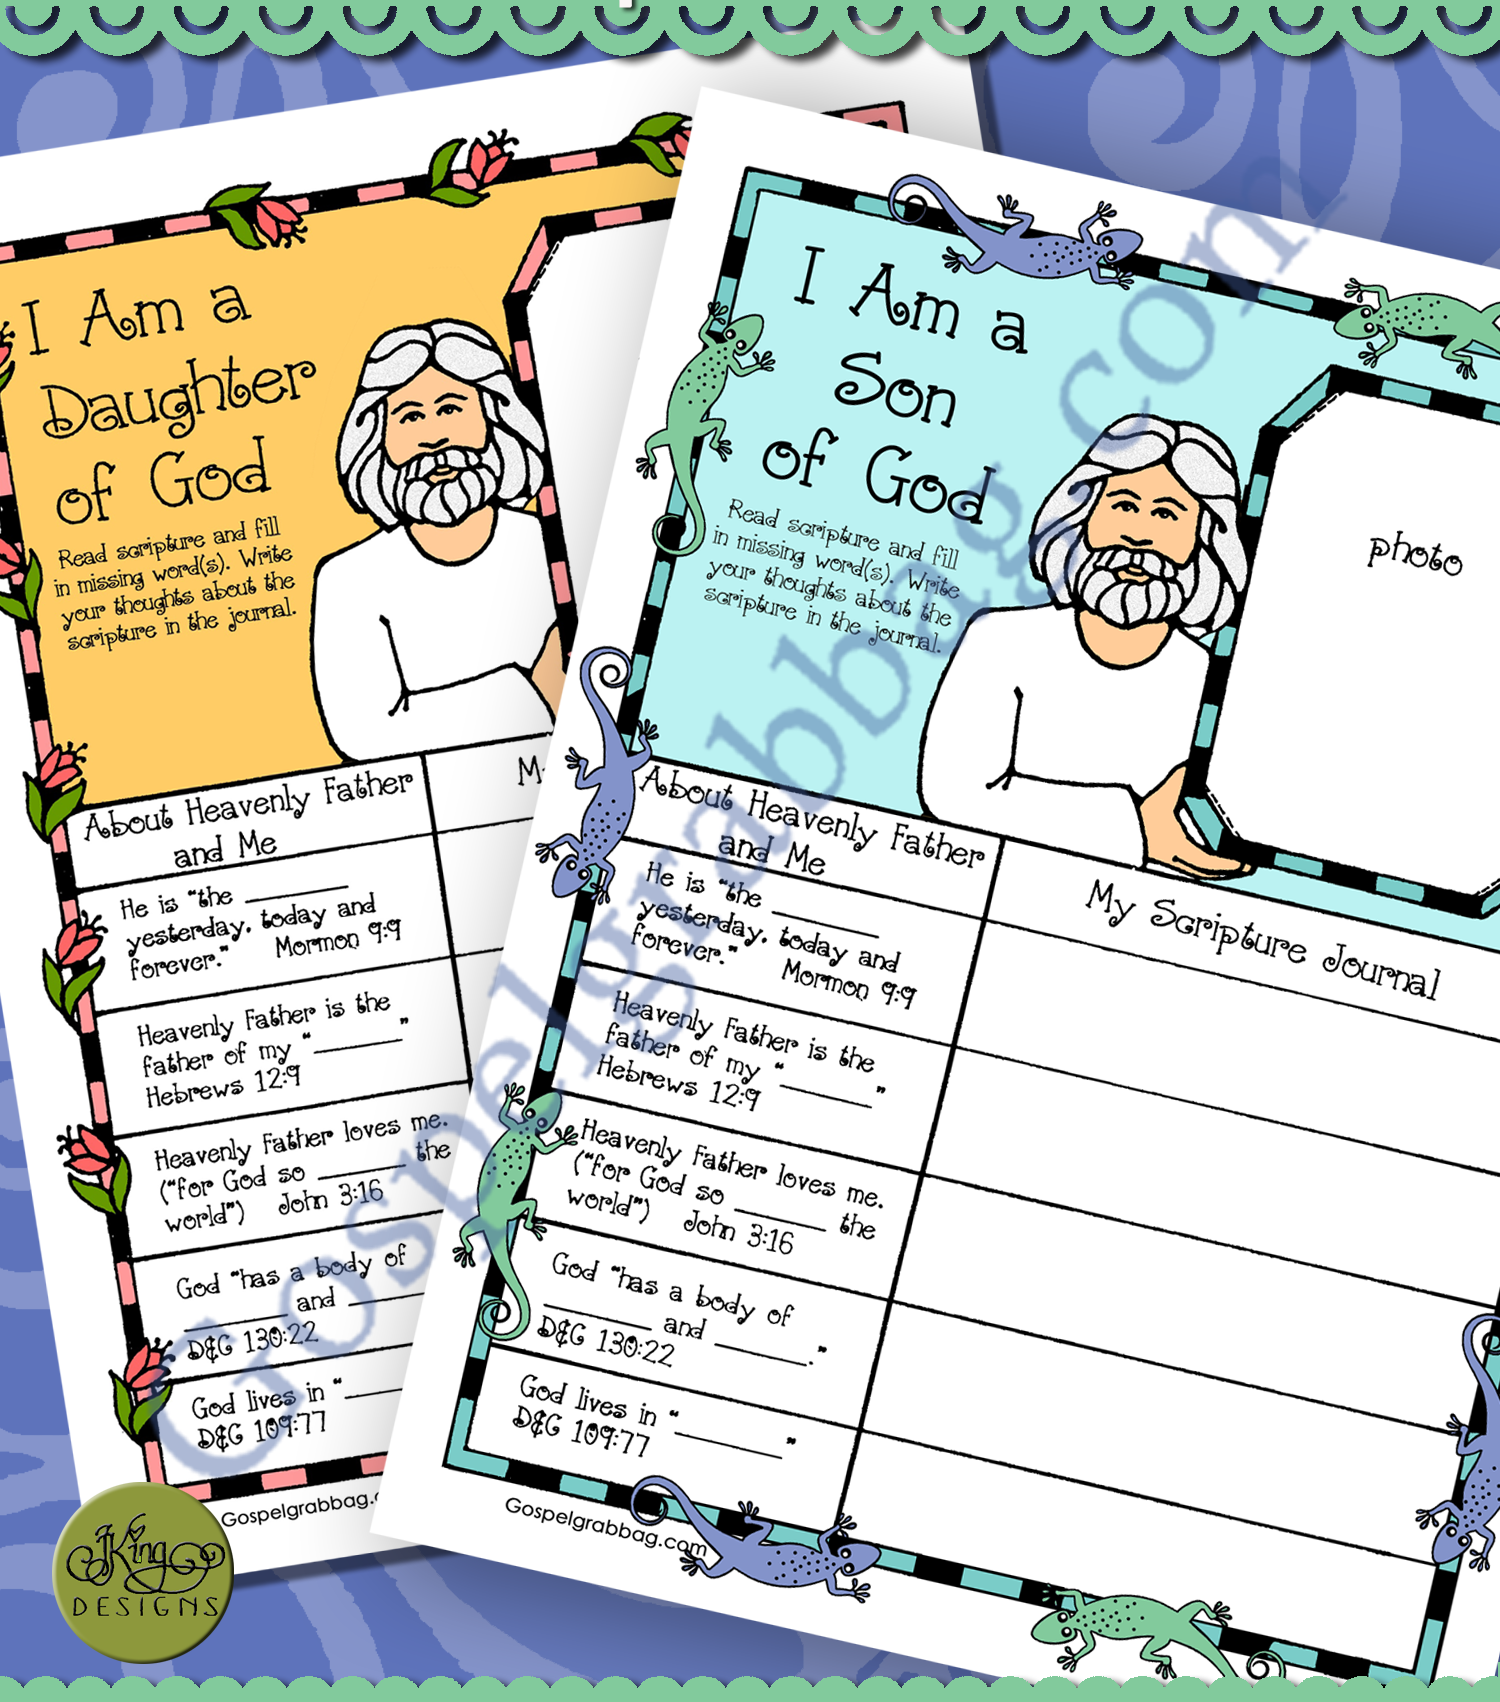 I Am a
Daughter
of God
Read scripture and fill
in missing word(s). Write
your thoughts about the
scripture in the journal.
About Heavenly Father
and Me
He is "the ________
yesterday, today and
forever." Mormon 9:9
Heavenly Father is the
father of my "_______"
Hebrews 12:9
Heavenly Father loves me.
("for God so _______ the
world") John 3:16
God "has a body of
________ and ______
D&C 130:22
God lives in "_____
D&C 109:77
Gospelgrabbag.
I Am a
Son
of God
Read scripture and fill
in missing word(s). Write
your thoughts about the
scripture in the journal.
photo
About Heavenly Father
and Me
My Scripture Journal
He is "the ________
yesterday, today and
forever." Mormon 9:9
Heavenly Father is the
father of my "_______"
Hebrews 12:9
Heavenly Father loves me.
("for God so _______ the
world") John 3:16
God "has a body of
________ and _______."
D&C 130:22
God lives in "________"
D&C 109:77
Gospelgrabbag.com
Gospelgrabbag.com
JKing
DESIGNS